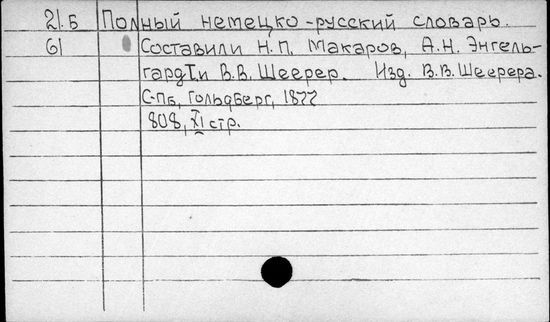 21.Б Полный немецко-русский словарь.
61 Составили Н.П. Макаров, А.Н. Энгель-
гардт и В.В. Шеерер. Изд. В.В. Шеерера.
С-Пб, Гольдберг, 1877
808, XI стр.